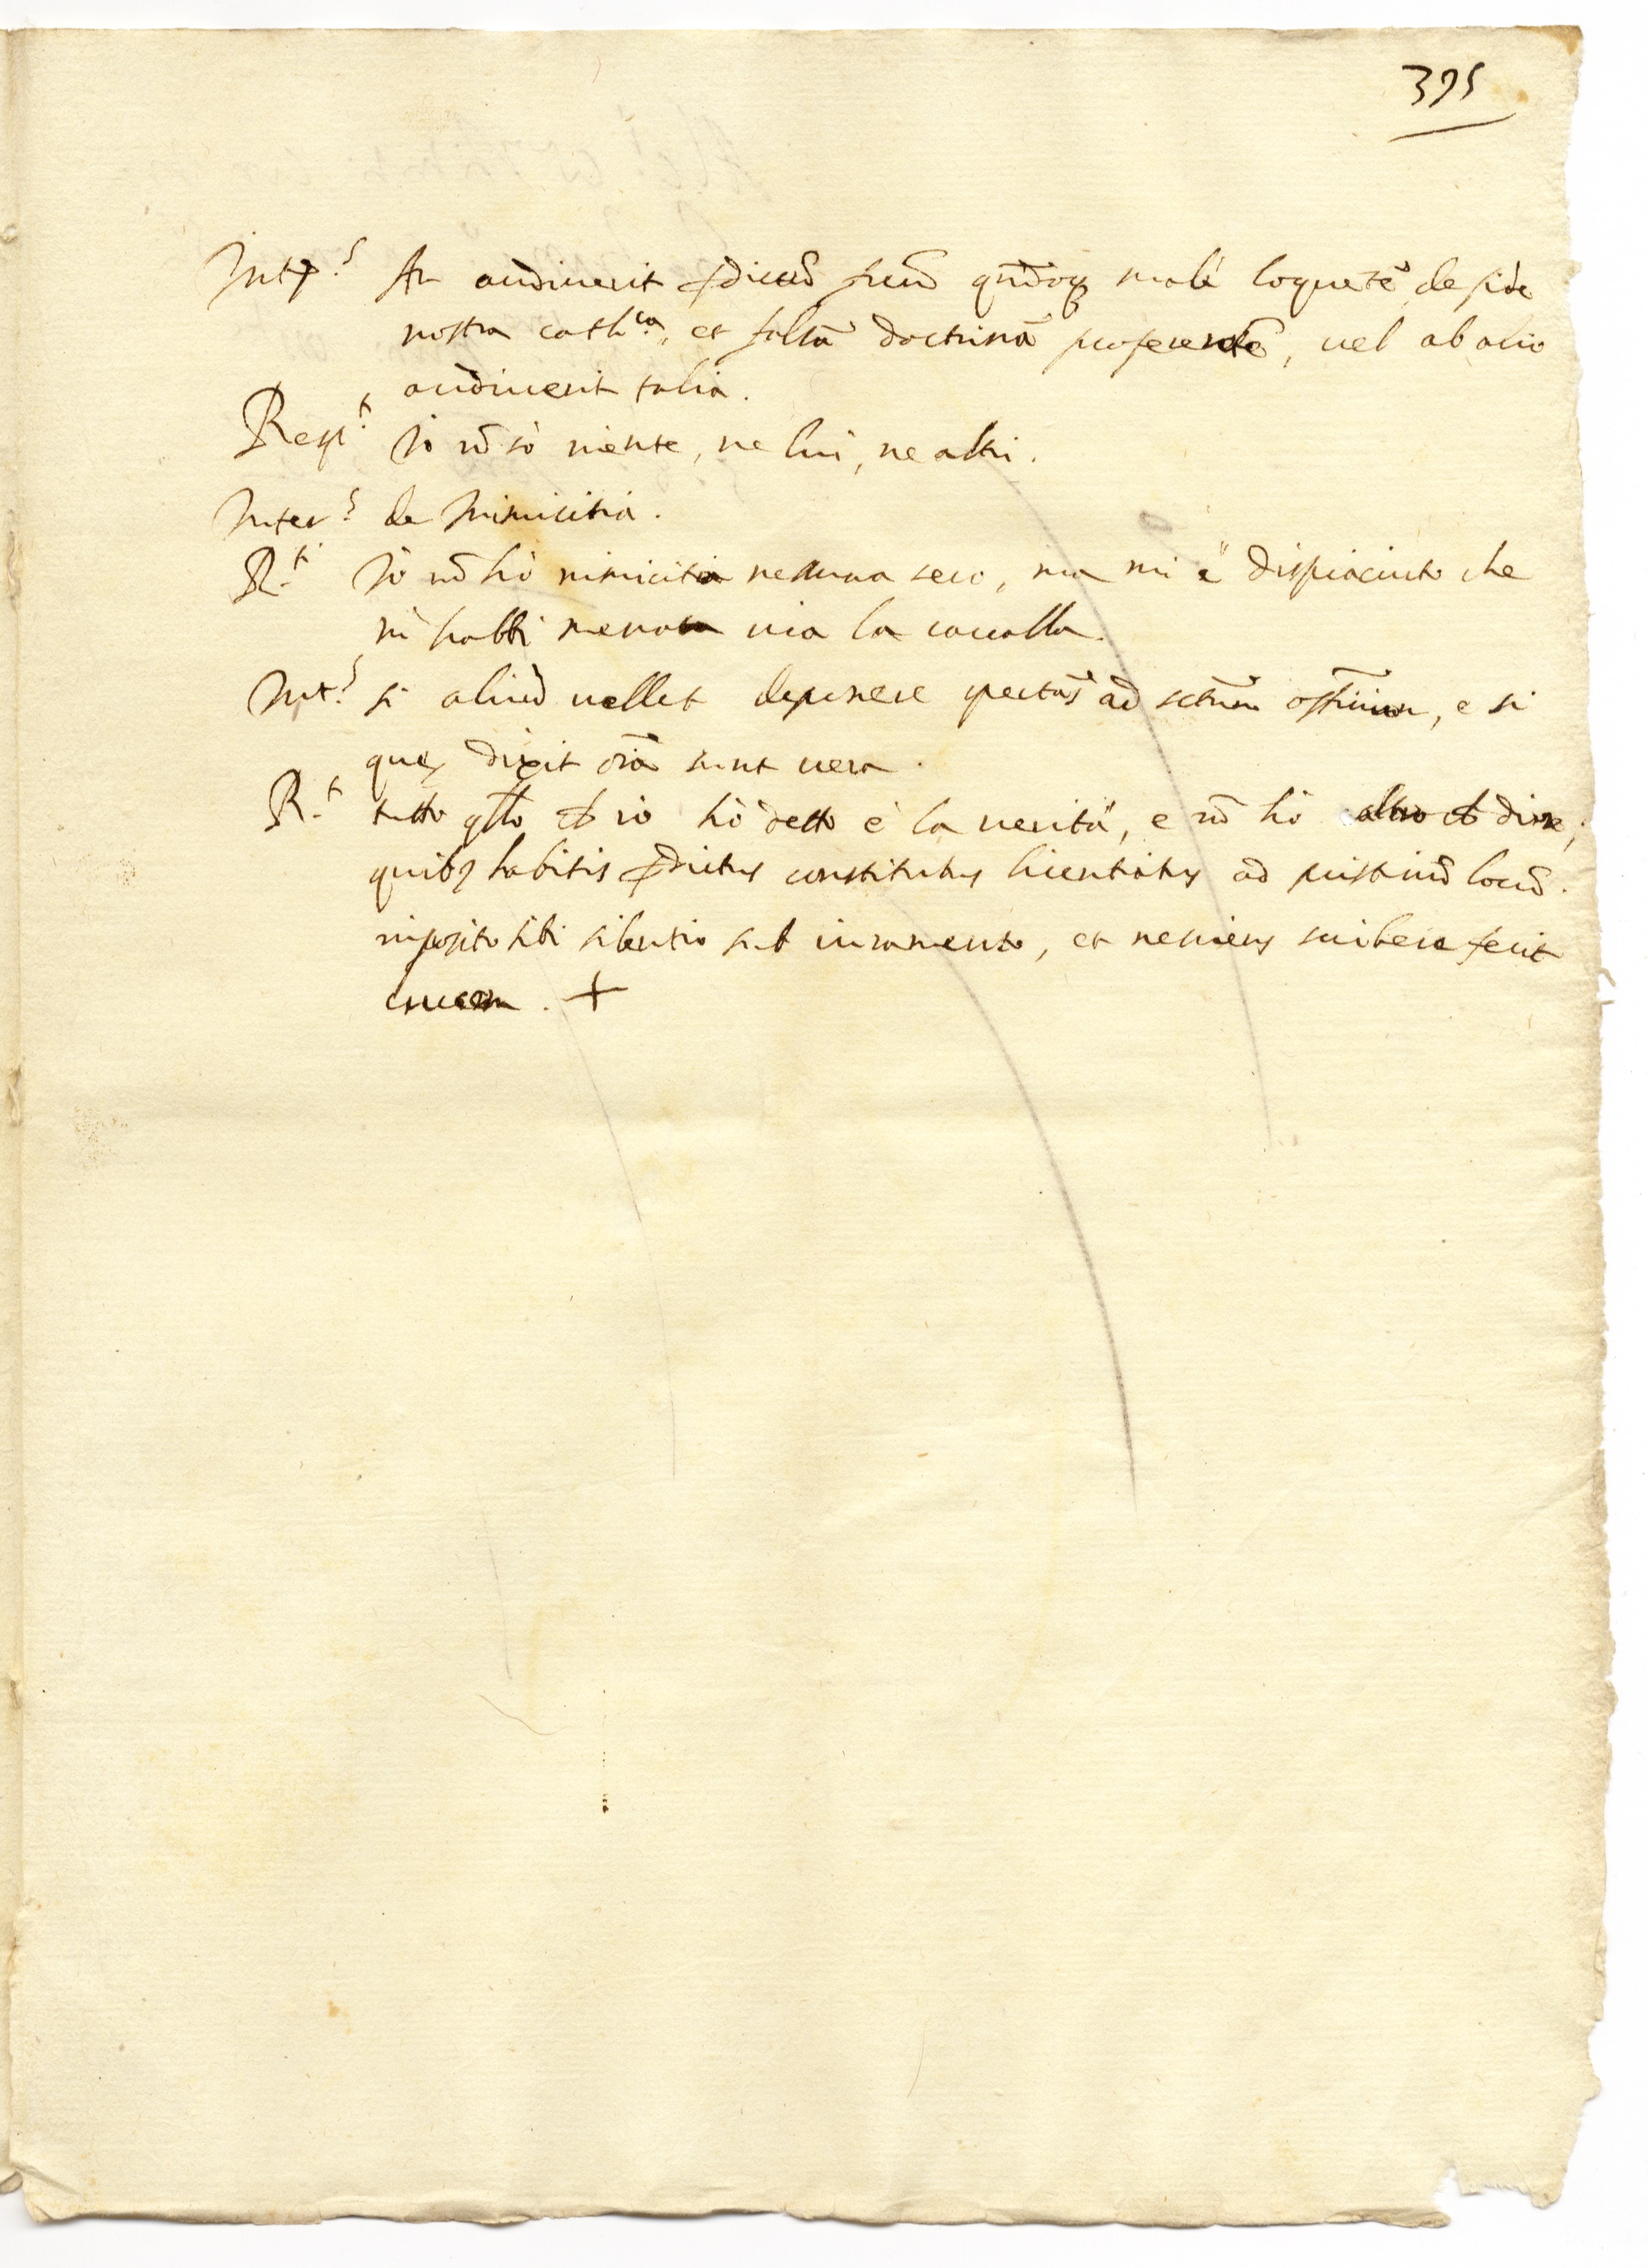 395
Int.s An audiuerit p̃dictũ fr̃em qñdoq; malè loquẽtẽ de fide
nostra cath.ca, et falsã doctrinã proferentẽ, uel ab alio
audiuerit talia.
Resp.t Io nõ sò niente, ne lui, ne altri.
Inter.s de Inimicitia.
R.t Io nõ hò nimicitia nessuna seco, ma mi è dispiaciuto che
m' habbi menata uia la caualla.
Int.s si aliud uellet deponere spectãs ad sctũm offitium, e si
que dixit oĩa sunt uera.
R.t tutto q̃llo ch̃ io hò detto è la uerità, e nõ hò altro ch̃ dire;
quibq habitis p̃dictus constitutus licentiatus ad pristinũ locũ.
imposito sibi silentio sub iuramento, et nesciens scribere fecit
crucem. +